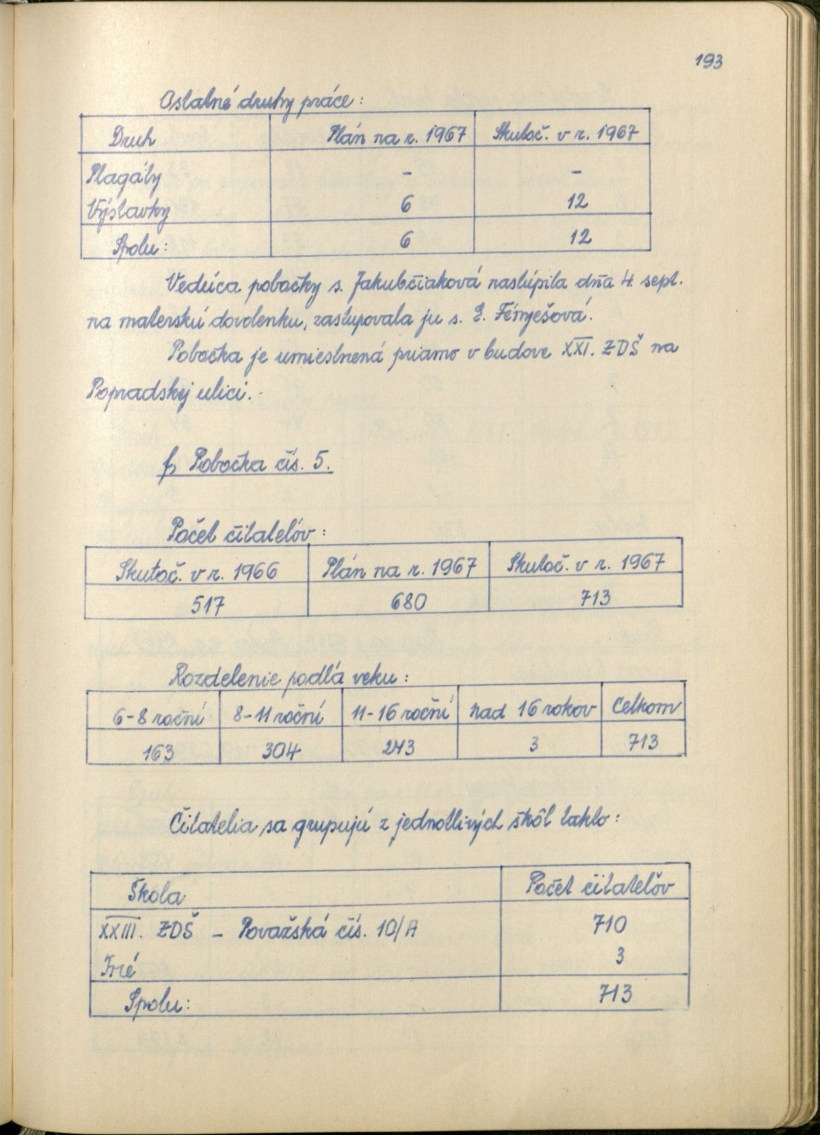 193
Ostatné druhy práce:
Druh Plán na r. 1967 Skutoč. v r. 1967
Plagáty - -
Výstavky 6 12
Spolu: 6 12
Vedúca pobočky s. Jakubčiaková nastúpila dňa 4. sept.
na materskú dovolenku, zastupovala ju s. E. Fényešová.
Pobočka je umiestnená priamo v budove XXI. ZDŠ na
Popradskej ulici.
f, Pobočka čís. 5.
Počet čitateľov:
Skutoč. v r. 1966 Plán na r. 1967 Skutoč. v r. 1967
517 680 713
Rozdelenie podľa veku:
6-8 roční 8-11 roční 11-16 roční nad 16 rokov Celkom
163 304 243 3 713
Čitatelia sa grupujú z jednotlivých škôl takto:
Škola Počet čitateľov
XXIII. ZDŠ - Považská čís. 10/A 710
Iné 3
Spolu: 713